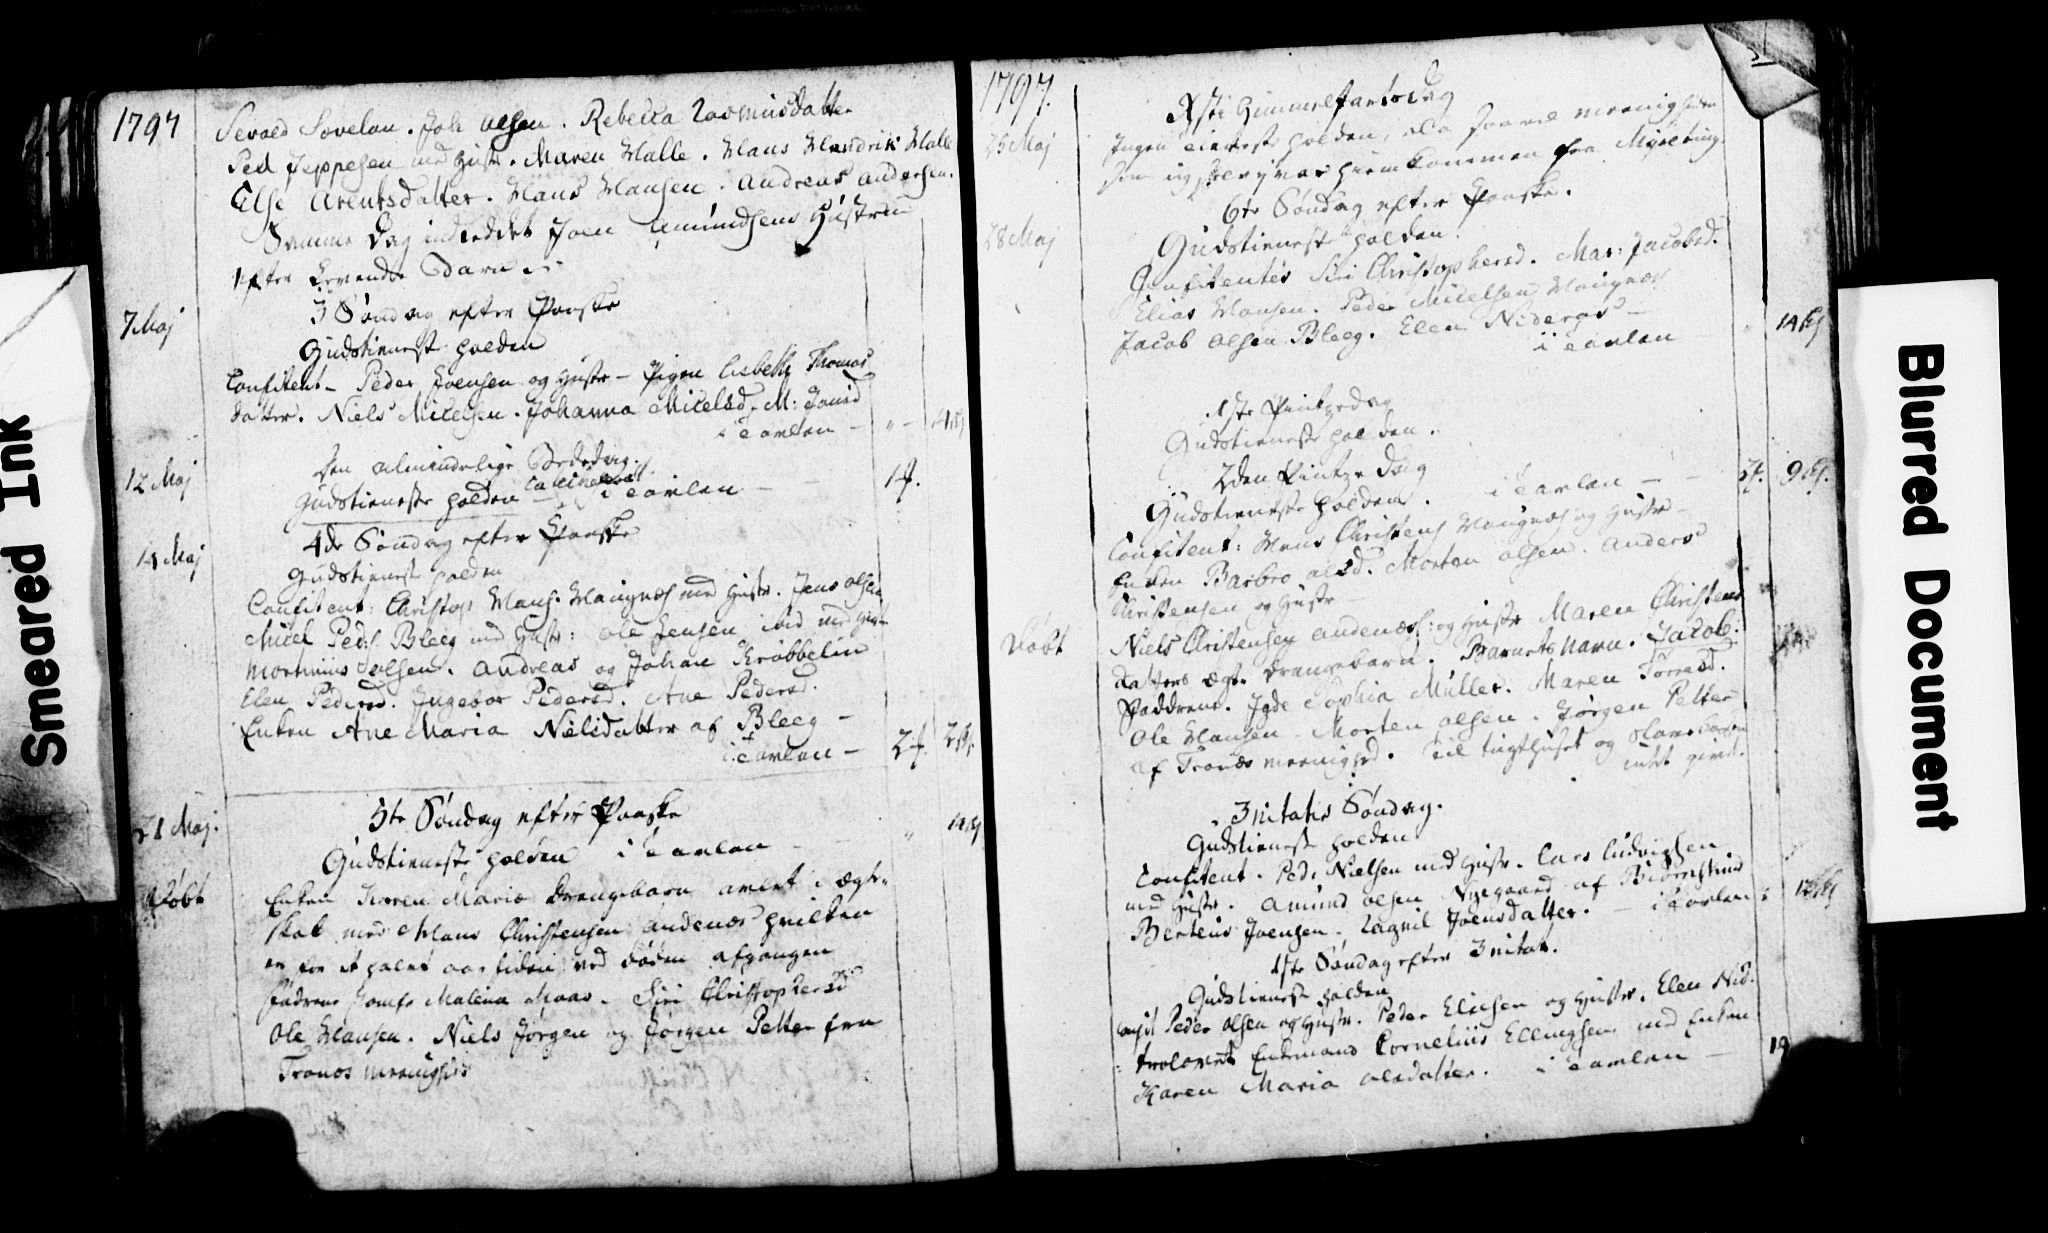 1797
Sevald Sovelan. Joh Olsen. Rebecca Rasmusdatter
Ped Jeppesen med Hustr. Maren Halle. Hans Hendrik Halle
Else Arentsdatter. Hans Hansen. Andreas Andersen.
Samme Dag indleddet Joen Amundsens Hustrue
efter Barn
7 Maj
3 Søndag efter Paaske
Gudstieneste holden
Confitent- Peder Joensen og Hustr- Pigen Lisbeth Thomas
datter. Niels Micelsen. Johanna Micelsd. M:
i Tavlen - " -
12 Maj
Den almindelige Bededag.
Gudstieneste holden - i Tavlen - 1
14 Maj
4de Søndag efter Paaske
Gudstieneste holden
Confitent: Christop Hans. med Hustr. Jens Olsen
Micel Peds. Bleeg med Hustr: Ole Jensen ibid med Hustr
Mortinius Olsen. Andreas og Johan Krøbbelin
Elen Pedersd. Ingebor Pedersd. Ane Pedersd.
Enken Ane Maria Nielsdatter af Bleeg -
i Tavlen - 2
21 Maj.
5te Søndag efter Paaske
Gudstieneste holden i Tavlen -
Døbt
Enken Karen Maria Drengebarn avlet i Ægte-
skab med Hans Christensen Andenæs hvilken
er for et halvt aar siden ved Døden afgangen
Fadrene Jomfr Malena Maas. Siri Christophersd
Ole Hansen. Niels Jørgen og Jørgen Petter fra
Tranøs Menighed
1797.
25 Maj
Xsti Himmelfartsdag
Ingen Tieneste holden, da saavel Menigheden
som ieg var hiemkommen fra
28 Maj
6te Søndag efter Paaske.
Gudstieneste holden.
Confitentes Siri Christophersd. Mar: Jacobsd.
Elias Hansen. Peder Micelsen
Jacob Olsen Bleeg. Elen Nidersd -
i Tavlen - " 14
1ste Pintzedag
Gudstieneste holden.
2den Pintze Dag
Gudstieneste holden. i Tavlen - - 9
Confitent: Hans Christens og Hustr -
Enken Barbro Olsd. Morten Olsen. Anders
Christensen og Hustr -
Døbt
Niels Christensen Andenæs: og Hustr Maren Christens
datters ægte Drengebarn. Barnets Navn. Jacob.
Faddrene. Sophia Müller. Maren Torresd.
Ole Hansen. Morten Olsen. Jørgen Petter
af Tranøs Menighed. Til Tugthuset og
intet given.
Trinitatis Søndag.
Gudstieneste holden
Confitent. Ped. Nielsen med Hustr. Lars Ludvigsen
med Hustr. Amund Olsen Nygaard af
Berteus Joensen. Ragnil Joensdatter. - i Tavlen
1ste Søndag efter Trinitat.
Gudstieneste holden
Confit Peder Olsen og Hustr. Peder Eliesen og Hustr. Elen Nid.
trolovet Enkemand Cornelius Ellingsen med Enken
Karen Maria Olsdatter. i Tavlen - 19
Smeared Ink
Blurred Document